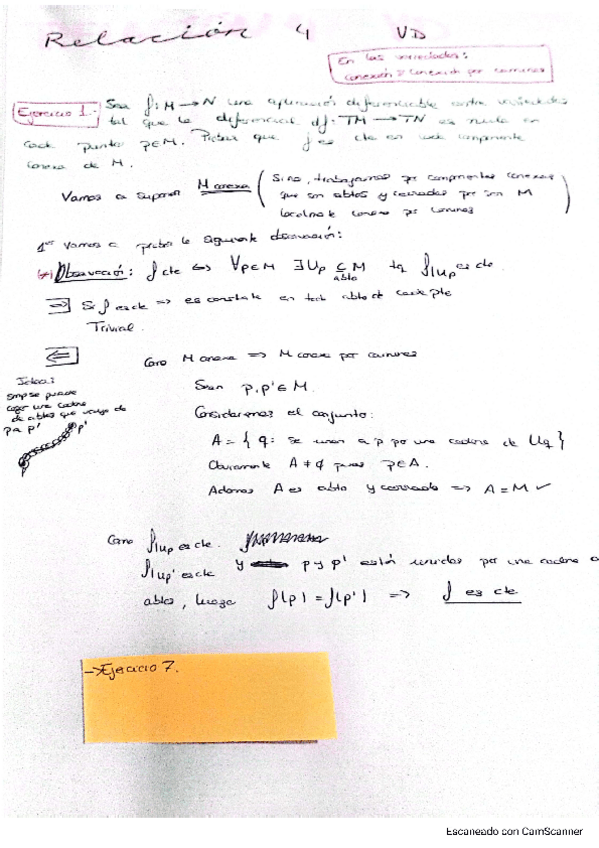 Relación 4 VD
En las variedades:
conexión ≡ conexión por caminos
Ejercicio 1.- Sea f: M → N una aplicación diferenciable entre variedades
tal que la diferencial df: TM → TN es nula en
cada punto p∈M. Probar que f es cte en cada componente
conexa de M.
Vamos a suponer M conexa ( Si no, trabajamos por componentes conexas
que son abtos y cerrados por ser M
localmte conexo por caminos )
1º Vamos a probar la siguiente observación:
(*) Observación: f cte ⇔ ∀p∈M ∃Up ⊆ M tq f|Up es cte.
abto
⇒ Si f es cte ⇒ es constante en todo abto de cada pto
Trivial.
⇐ Como M conexa ⇒ M conexa por caminos
Idea:
smpse puede
coger una cadena
de abtos que vaya de
p a p'
p'
p
Sean p, p' ∈ M.
Consideremos el conjunto:
A = { q: se unen a p por una cadena de Uq }
Obviamente A ≠ ∅ pues p∈A.
Además A es abto y cerrado ⇒ A = M ✓
Como f|Up es cte.
f|Up' es cte y p y p' están unidos por una cadena
abtos, luego f(p) = f(p') ⇒ f es cte
→ Ejercicio 7.
Escaneado con CamScanner